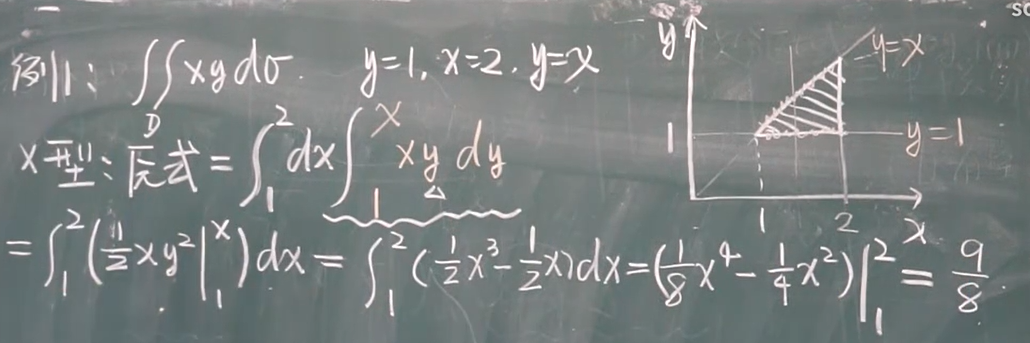 例1: ∬_D xy dσ. y=1, x=2, y=x
x型: 原式 = ∫_1^2 dx ∫_1^x xy dy
= ∫_1^2 (1/2 xy²|_1^x) dx = ∫_1^2 (1/2 x³ - 1/2 x) dx = (1/8 x⁴ - 1/4 x²)|_1^2 = 9/8
y
y=x
1
y=1
1 2 x